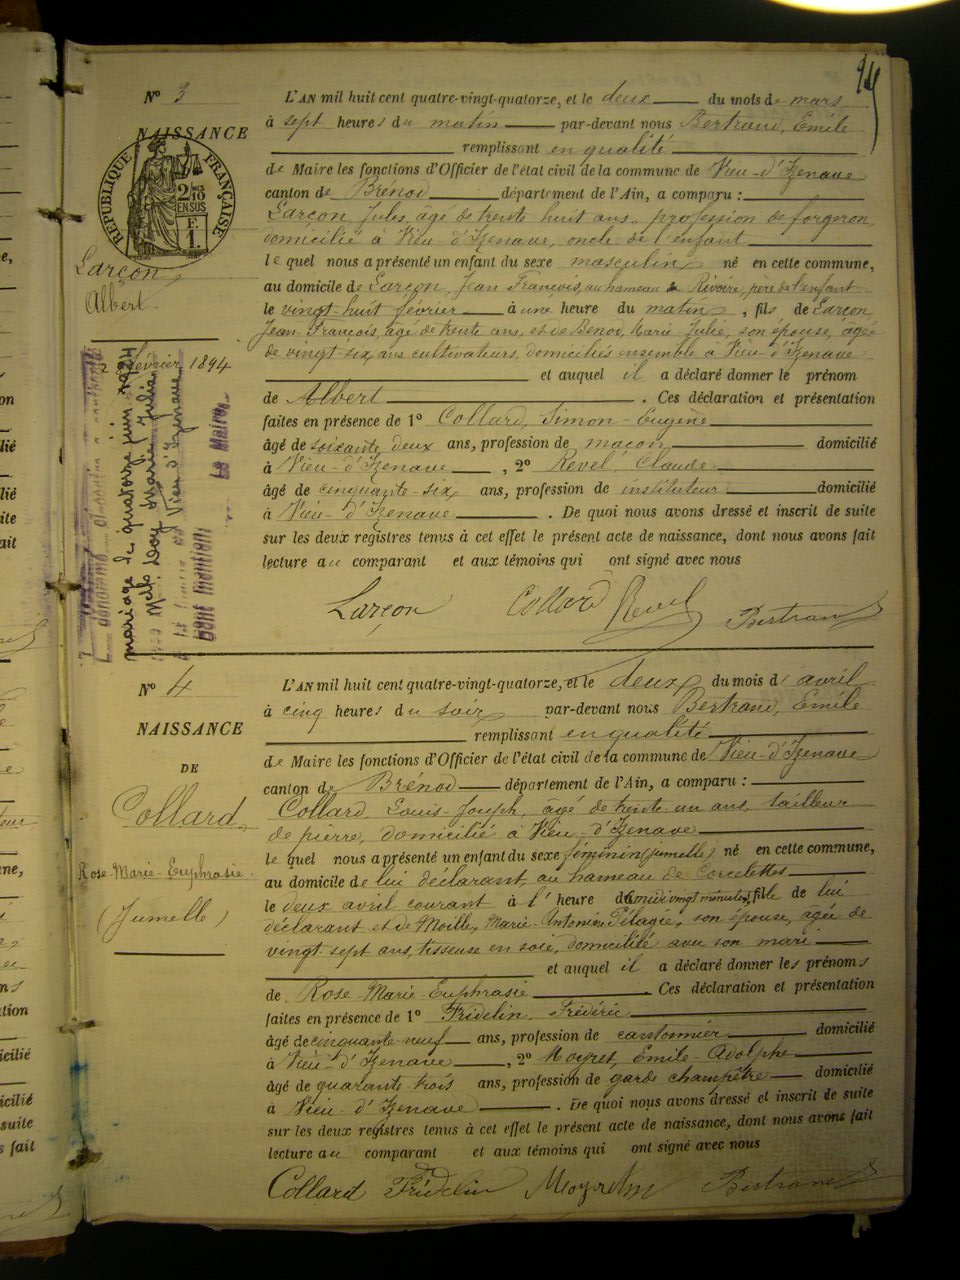 Nº 3
L'AN mil huit cent quatre-vingt-quatorze, et le deux du mois de mars
à sept heures du matin par-devant nous Bertrand, Emile
NAISSANCE
remplissant en qualité
de Maire les fonctions d'Officier de l'état civil de la commune de Vieu-d'Izenave
canton de Brénod département de l'Ain, a comparu :
RÉPUBLIQUE FRANÇAISE
2/10 EN SUS
F. 1.
Larçon, Jules, âgé de trente huit ans, profession de forgeron,
domicilié à Vieu-d'Izenave, oncle de l'enfant
Larçon
Albert.
le quel nous a présenté un enfant du sexe masculin né en cette commune,
au domicile de Larçon, Jean François, au hameau de Rivoire, père de l'enfant
le vingt-huit février à une heure du matin, fils de Larçon,
Jean-François, âgé de trente ans, et de Benod, Marie Julie, son épouse, âgée
de vingt-six ans, cultivateurs, domiciliés ensemble à Vieu-d'Izenave
février 1894
et auquel il a déclaré donner le prénom
de Albert. Ces déclaration et présentation
faites en présence de 1º Collard, Simon-Eugène
âgé de soixante deux ans, profession de maçon domicilié
à Vieu-d'Izenave, 2º Revel, Claude
âgé de cinquante-six ans, profession de instituteur domicilié
à Vieu-d'Izenave. De quoi nous avons dressé et inscrit de suite
sur les deux registres tenus à cet effet le présent acte de naissance, dont nous avons fait
lecture au comparant et aux témoins qui ont signé avec nous
mariage du quatorze juin
avec Melle Marie Julie
Vieu d'Izenave
Dont mention
Le Maire,
Larçon Collard Revel Bertrand
Nº 4
L'AN mil huit cent quatre-vingt-quatorze, et le deux du mois d'avril
à cinq heures du soir par-devant nous Bertrand, Emile
NAISSANCE
remplissant en qualité
DE
de Maire les fonctions d'Officier de l'état civil de la commune de Vieu-d'Izenave
canton de Brénod département de l'Ain, a comparu :
Collard,
Collard, Louis-Joseph, âgé de trente-un ans, tailleur
de pierre, domicilié à Vieu-d'Izenave
le quel nous a présenté un enfant du sexe féminin (jumelle) né en cette commune,
Rose-Marie-Euphrasie.
au domicile de lui déclarant, au hameau de Corcelettes
(Jumelle)
le deux avril courant à l'heure de midi vingt minutes, fille de lui
déclarant et de Moille, Marie-Antoinine Pélagie, son épouse, âgée de
vingt sept ans, tisseuse en soie, domicilié avec son mari
et auquel il a déclaré donner les prénoms
de Rose-Marie-Euphrasie. Ces déclaration et présentation
faites en présence de 1º Fridelin, Frédéric
âgé de cinquante-neuf ans, profession de cantonnier domicilié
à Vieu-d'Izenave, 2º Moyret, Emile-Adolphe
âgé de quarante-trois ans, profession de garde champêtre domicilié
à Vieu-d'Izenave. De quoi nous avons dressé et inscrit de suite
sur les deux registres tenus à cet effet le présent acte de naissance, dont nous avons fait
lecture au comparant et aux témoins qui ont signé avec nous
Collard Fridelin Moyret Bertrand